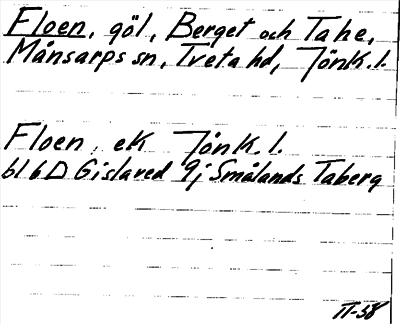 Floen, göl, Berget och Tahe,
Månsarps sn, Tveta hd, Jönk. l.
Floen, ek Jönk. l.
bl 6D Gislaved 9j Smålands Taberg
II-58